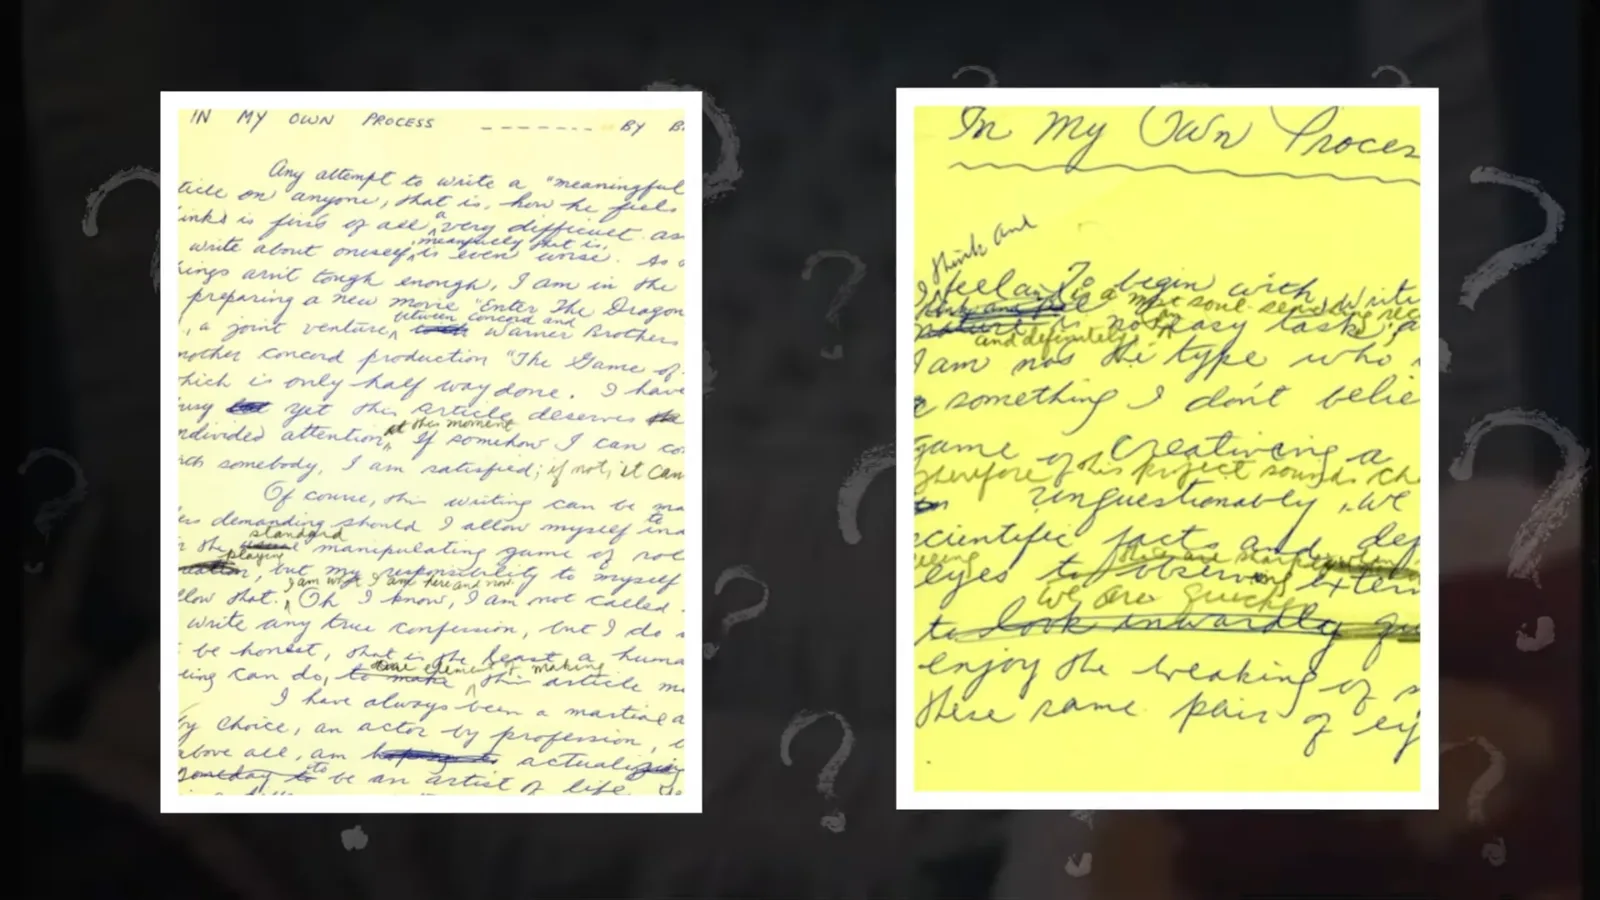 IN MY OWN PROCESS -------- BY B
Any attempt to write a "meaningful
ticle on anyone, that is, how he feels
inks is first of all a very difficult as
write about oneself, meaningfully that is, is even worse. As
ings arn't tough enough, I am in the
preparing a new movie "Enter The Dragon
, a joint venture between Concord and Warner Brothers
nother Concord production "The Game of
hich is only half way done. I have
usy yet this article deserves
ndivided attention at this moment. If somehow I can co
ith somebody, I am satisfied; if not, it can
Of course, this writing can be ma
less demanding should I allow myself to in
the standard manipulating game of rol
playing, but my responsibility to myself
llow that. I am what I am here and now. Oh I know, I am not called
write any true confession, but I do
be honest, that is the least a huma
eing can do, to make one element of making this article
I have always been a martial a
by choice, an actor by profession,
above all, am actualizing
someday to be an artist of life
In My Own Proces
I think and
feel. To begin with, write
is a most soul searching
is not an easy task, a
and definitely
I am not the type who
something I don't belie
game of creativing a
Therefore this project sounds cha
Unquestionably, we
scientific facts and dep
eyes to observing extern
we are quicker
to look inwardly qu
enjoy the weaking of
these same pair of ey